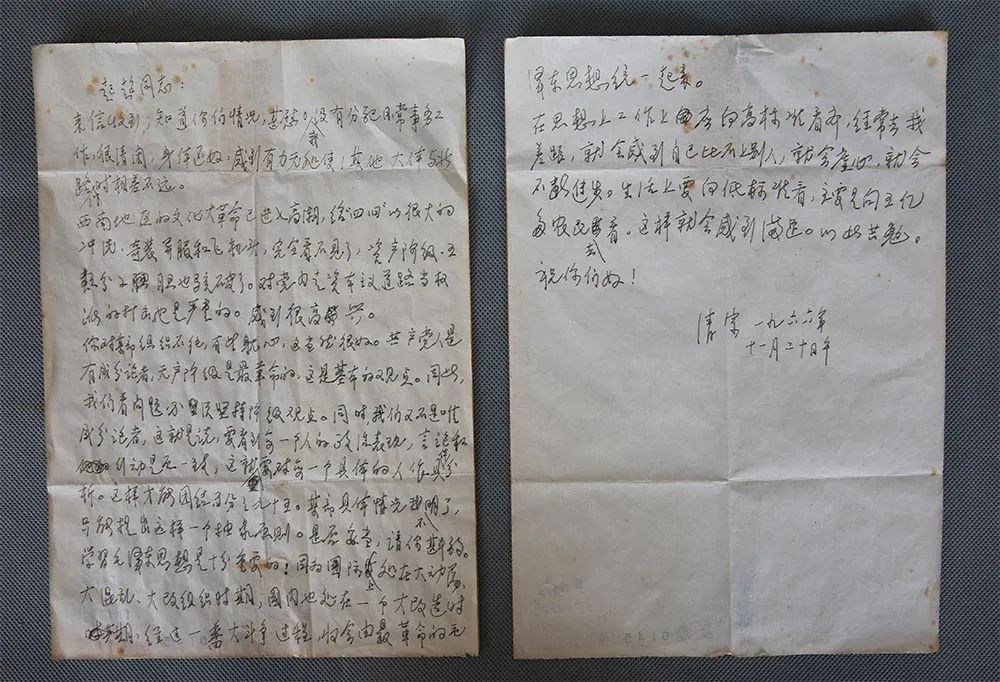 起超同志：
来信收到，知道你们情况，甚慰。我没有分配日常事务工
作，很清闲，身体还好，感到有力无处使！其他大体与往
时相差不远。
西南地区的文化大革命已进入高潮，给“四旧”以很大的
冲洗，奇装异服和飞机头，完全看不见了，资产阶级、五
类分子胆也吓破了。对党内走资本主义道路当权
派的打击也是严重的。感到很高兴。
你对某部组织不纯，有些耽心，这当然很好。共产党人是
有成分论者，无产阶级是最革命的，这是基本的观点。因此，
我们看问题必须坚持阶级观点。同时，我们又不是唯
成分论者，这就是说，要看到每一个人的政治表现，言论和
行动是否一致，这就要对每一个具体的人作具体分
析。这样才能团结百分之九十五。某部具体情况我不明了，
只能提出这样一个抽象原则。是否妥当，请你斟酌。
学习毛泽东思想是十分重要的！因为国际上处在大动荡、
大混乱、大改组织时期，国内也处在一个大改造时
期，经过一番大斗争过程，将会由最革命的毛
泽东思想统一起来。
在思想上工作上要向高标准看齐，经常去找
差距，就会感到自己比不上别人，就会虚心，就会
不断进步。生活上要向低标准看，主要是向五亿
多农民看。这样就会感到满足。以此共勉。
祝你们好！
清宗 一九六六年
十一月二十日午